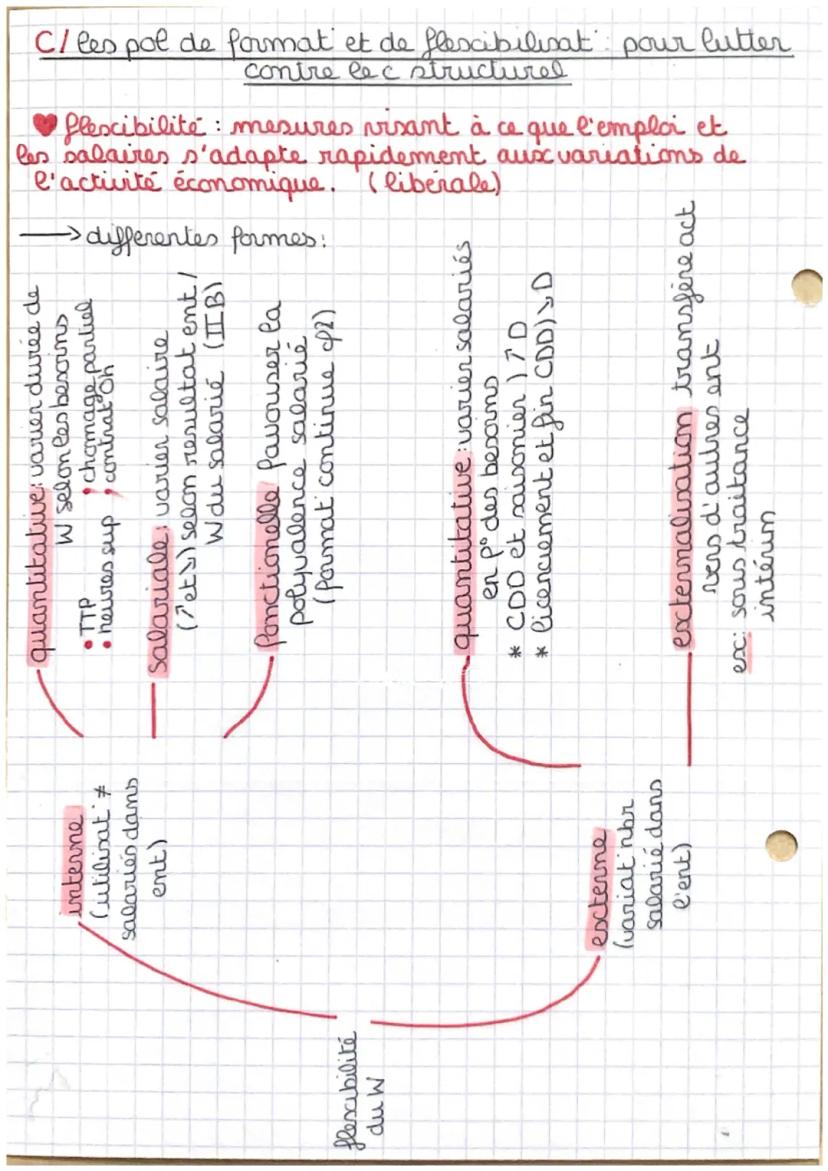 C/ les pol de format° et de flexcibilisat° : pour lutter
contre le c structurel
flexcibilité : mesures visant à ce que l'emploi et
les salaires s'adapte rapidement aux variations de
l'activité économique. (libérale)
→ differentes formes :
flexcibilité
du W
interne
(utilisat° ≠
salariés dans
ent)
quantitative : varier durée de
W selon les besoins
• TTP
• heures sup
chomage partiel
contrat 0h
salariale : varier salaire
(↗ et ↘) selon resultat ent /
W du salarié (II B)
fonctionelle favouser la
polyvalence salarié
(format° continue cf 2)
excterne
(variat° nbr
salarié dans
l'ent)
quantitative : varier salariés
en f° des besoins
* CDD et saisonier) ↗ D
* licenciement et fin CDD) ↘ D
excternalisation transfère act
vers d'autres ent
exc : sous traitance
intérim